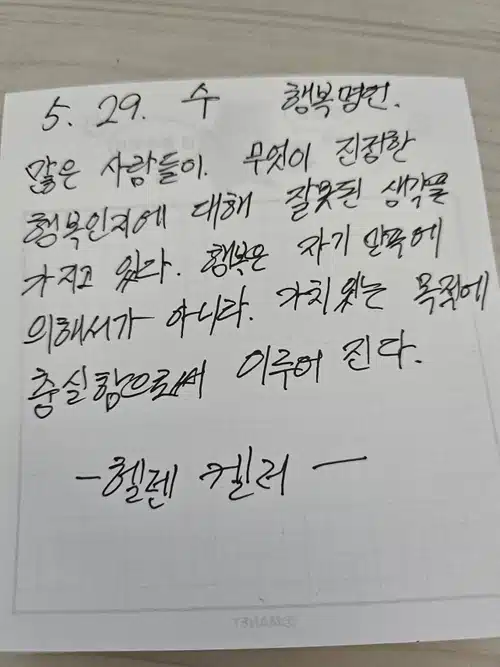 5. 29. 수 행복명언.
많은 사람들이. 무엇이 진정한
행복인지에 대해 잘못된 생각을
가지고 있다. 행복은 자기 만족에
의해서가 아니라. 가치있는 목적에
충실함으로써 이루어 진다.
-헬렌 켈러-